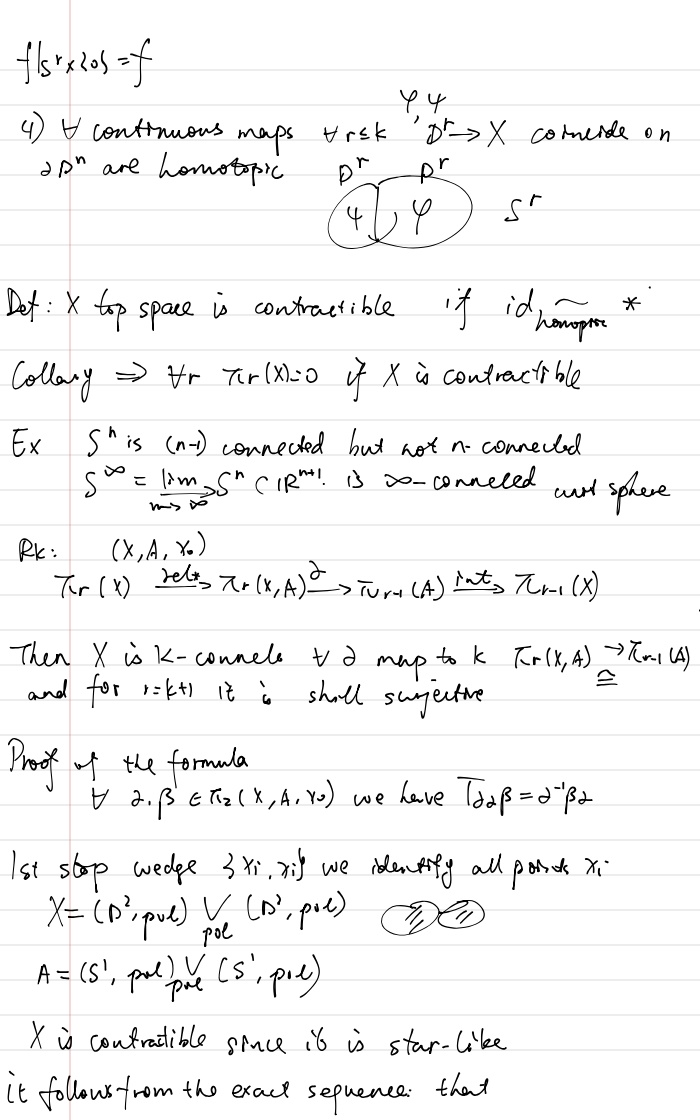 f|s^r×{0} = f
φ, ψ
4) ∀ continuous maps ∀ r≤k D^r → X coincide on
∂D^n are homotopic D^r D^r
ψ φ S^r
Def: X top space is contractible if id ~ *
Collary ⇒ ∀r πr(X)=0 if X is contractible
Ex S^n is (n-1) connected but not n-connected
S^∞ = lim S^n ⊂ IR^n+1 is ∞-conneled sphere
n→∞
Rk: (X, A, x₀)
πr(X) → πr(X,A) ∂→ πr-1(A) int→ πr-1(X)
Then X is k-connels ∀ ∂ map to k πr(X,A) → πr-1(A)
≅
and for r=k+1 it is shell surjective
Proof of the formula
∀ α, β ∈ π₂(X, A, x₀) we have T∂αβ = α⁻¹βα
1st stop wedge {xi, xi} we identify all points xi
X = (D², pol) ∨ (D², pol)
pol
A = (S¹, pol) ∨ (S¹, pol)
pol
X is contractible since it is star-like
it follows from the exact sequence: that